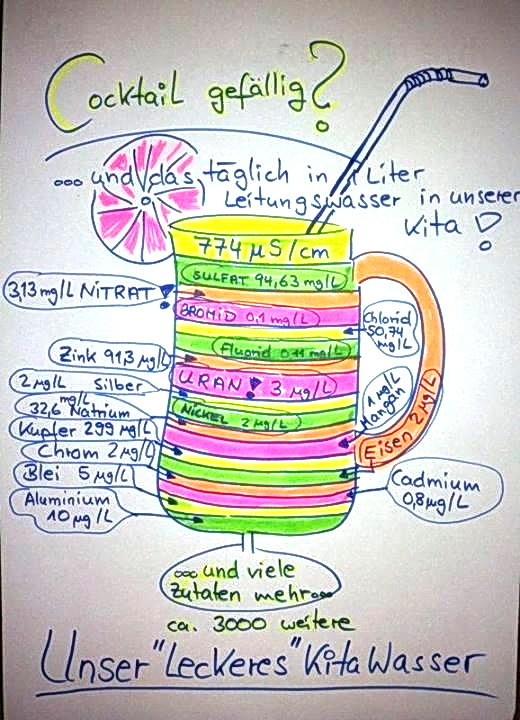 Cocktail gefällig?
... und das täglich in 1 Liter
Leitungswasser in unserer
Kita !
774 µS/cm
SULFAT 94,63 mg/L
3,13 mg/L NiTRAT !
BROMID 0,1 mg/L
Chlorid
50,74
mg/L
Fluorid 0,11 mg/L
Zink 91,3 µg/L
URAN ! 3 µg/L
2 µg/L Silber
1 µg/L
Mangan
32,6 mg/L Natrium
NICKEL 2 µg/L
Kupfer 299 µg/L
Eisen 2 µg/L
Chrom 2 µg/L
Blei 5 µg/L
Cadmium
0,8 µg/L
Aluminium
10 µg/L
... und viele
Zutaten mehr...
ca. 3000 weitere
Unser "Leckeres" Kita Wasser